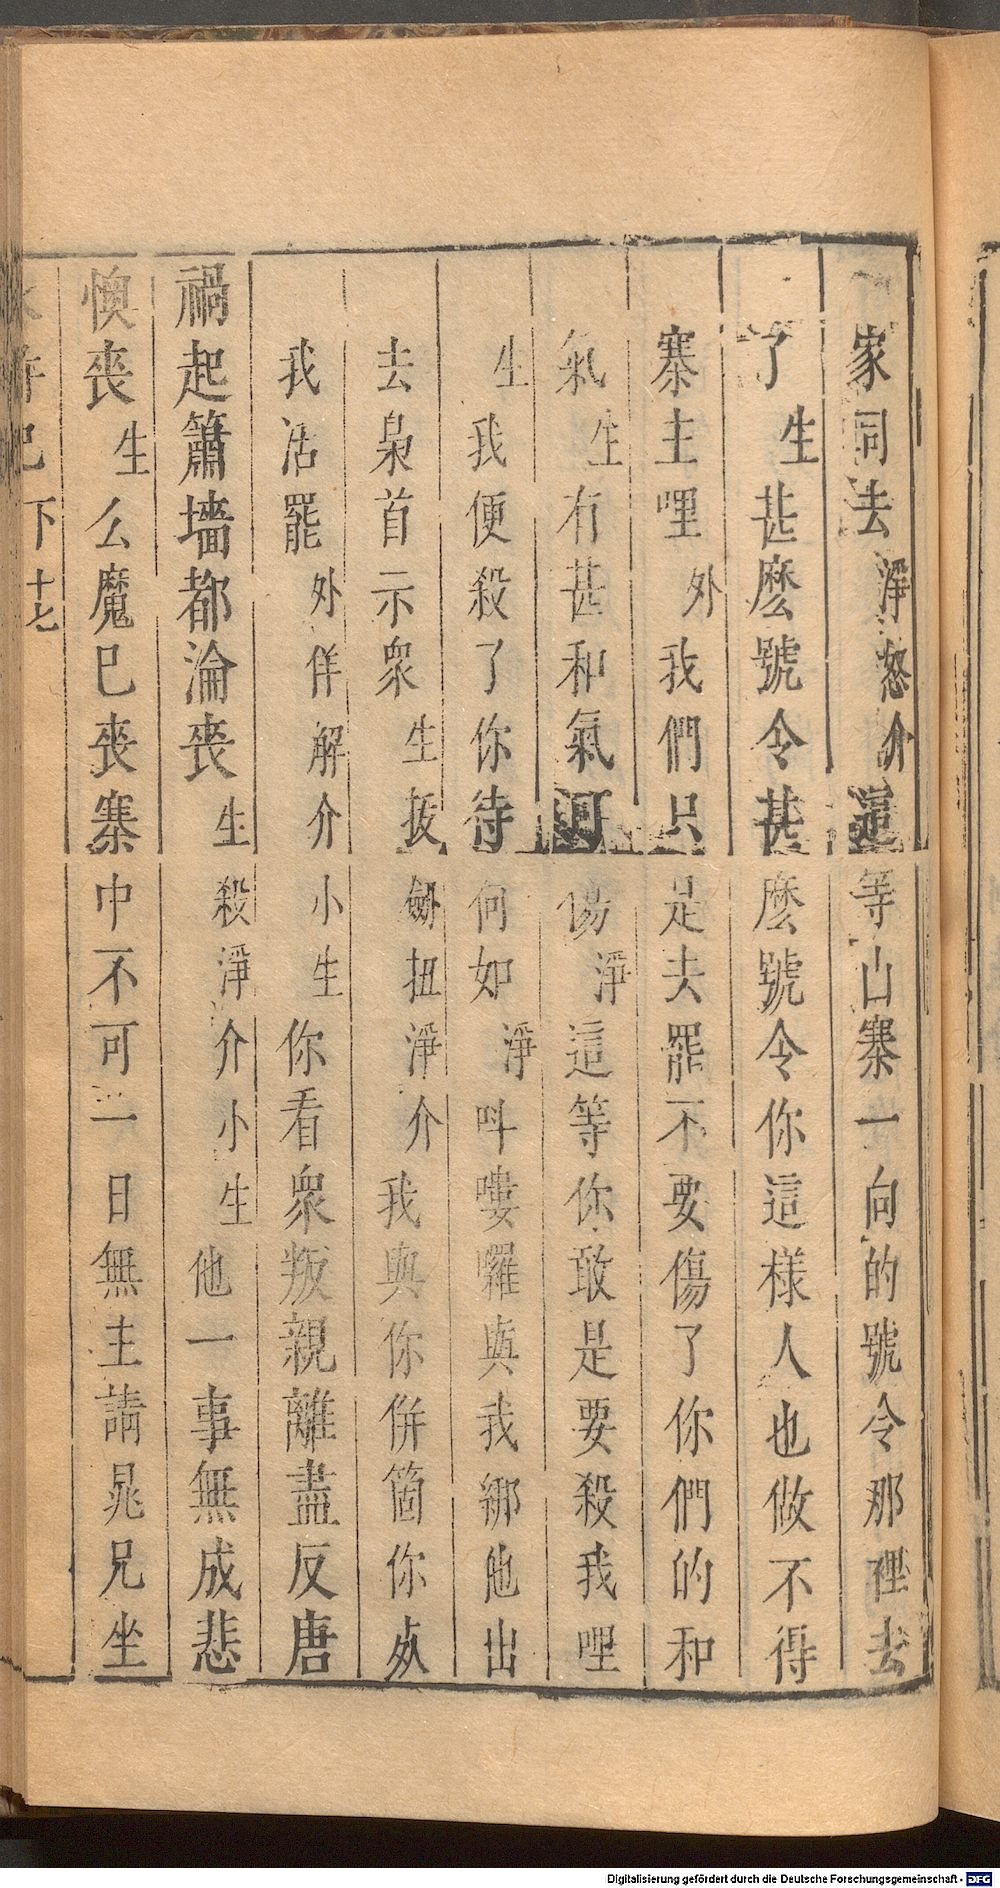 家同去淨怒介這等山寨一向的號令那裡去
了生甚麽號令甚麽號令你這樣人也做不得
寨主哩外我們只是去罷不要傷了你們的和
氣生有甚和氣可傷淨這等你敢是要殺我哩
生我便殺了你待何如淨呌嘍囉與我綁他出
去梟首示衆生拔劔扭淨介我與你併箇你死
我活罷外佯解介小生你看衆叛親離盡反唐
禍起簫墻都淪喪生殺淨介小生他一事無成悲
懊喪生么魔已喪寨中不可一日無主請晁兄坐
水滸記 下 十七
Digitalisierung gefördert durch die Deutsche Forschungsgemeinschaft - DFG